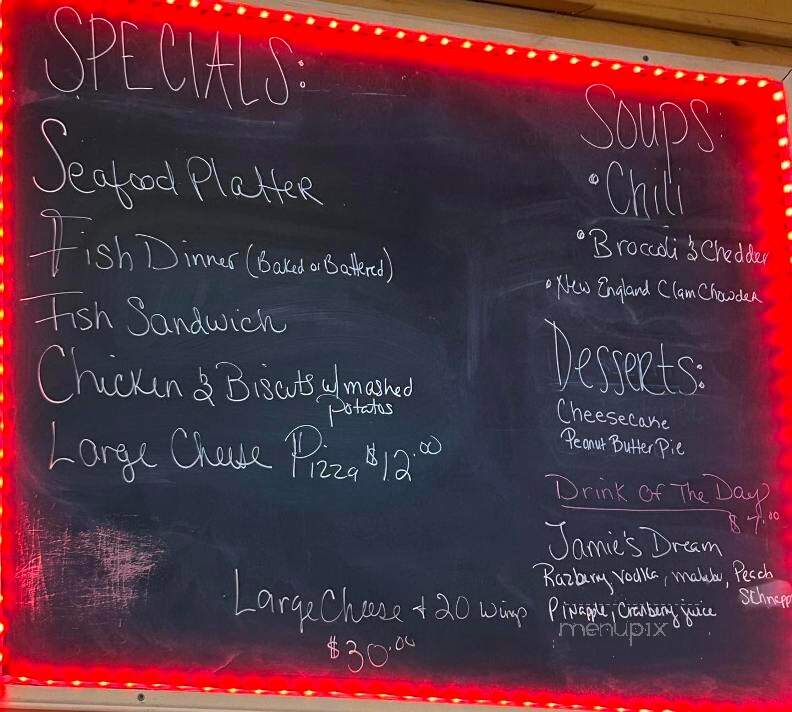 SPECIALS:
Seafood Platter
Fish Dinner (Baked or Battered)
Fish Sandwich
Chicken & Biscuts w/ mashed
potatos
Large Cheese Pizza $12.00
Large Cheese + 20 wings
$30.00
Soups:
• Chili
• Broccoli & Chedder
• New England Clam Chowder
Desserts:
Cheesecake
Peanut Butter Pie
Drink Of The Day
$7.00
Jamie's Dream
Razberry Vodka, malubu, Peach
Schnapp
Pinapple, Cranberry juice
menupix